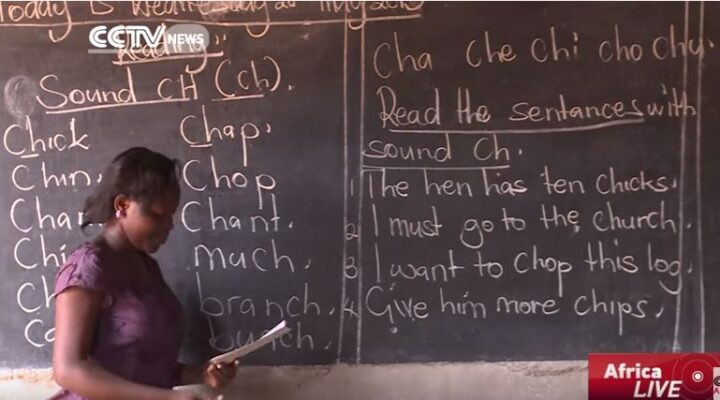 Today is Wednesday
CCTV NEWS
Reading
Sound CH (ch).
Chick
Chap.
Chin.
Chop
Chant.
much.
branch.
Cha che chi cho chu
Read the sentences with
sound ch.
1 The hen has ten chicks.
2 I must go to the church.
3 I want to chop this log.
4 Give him more chips.
Africa
LIVE